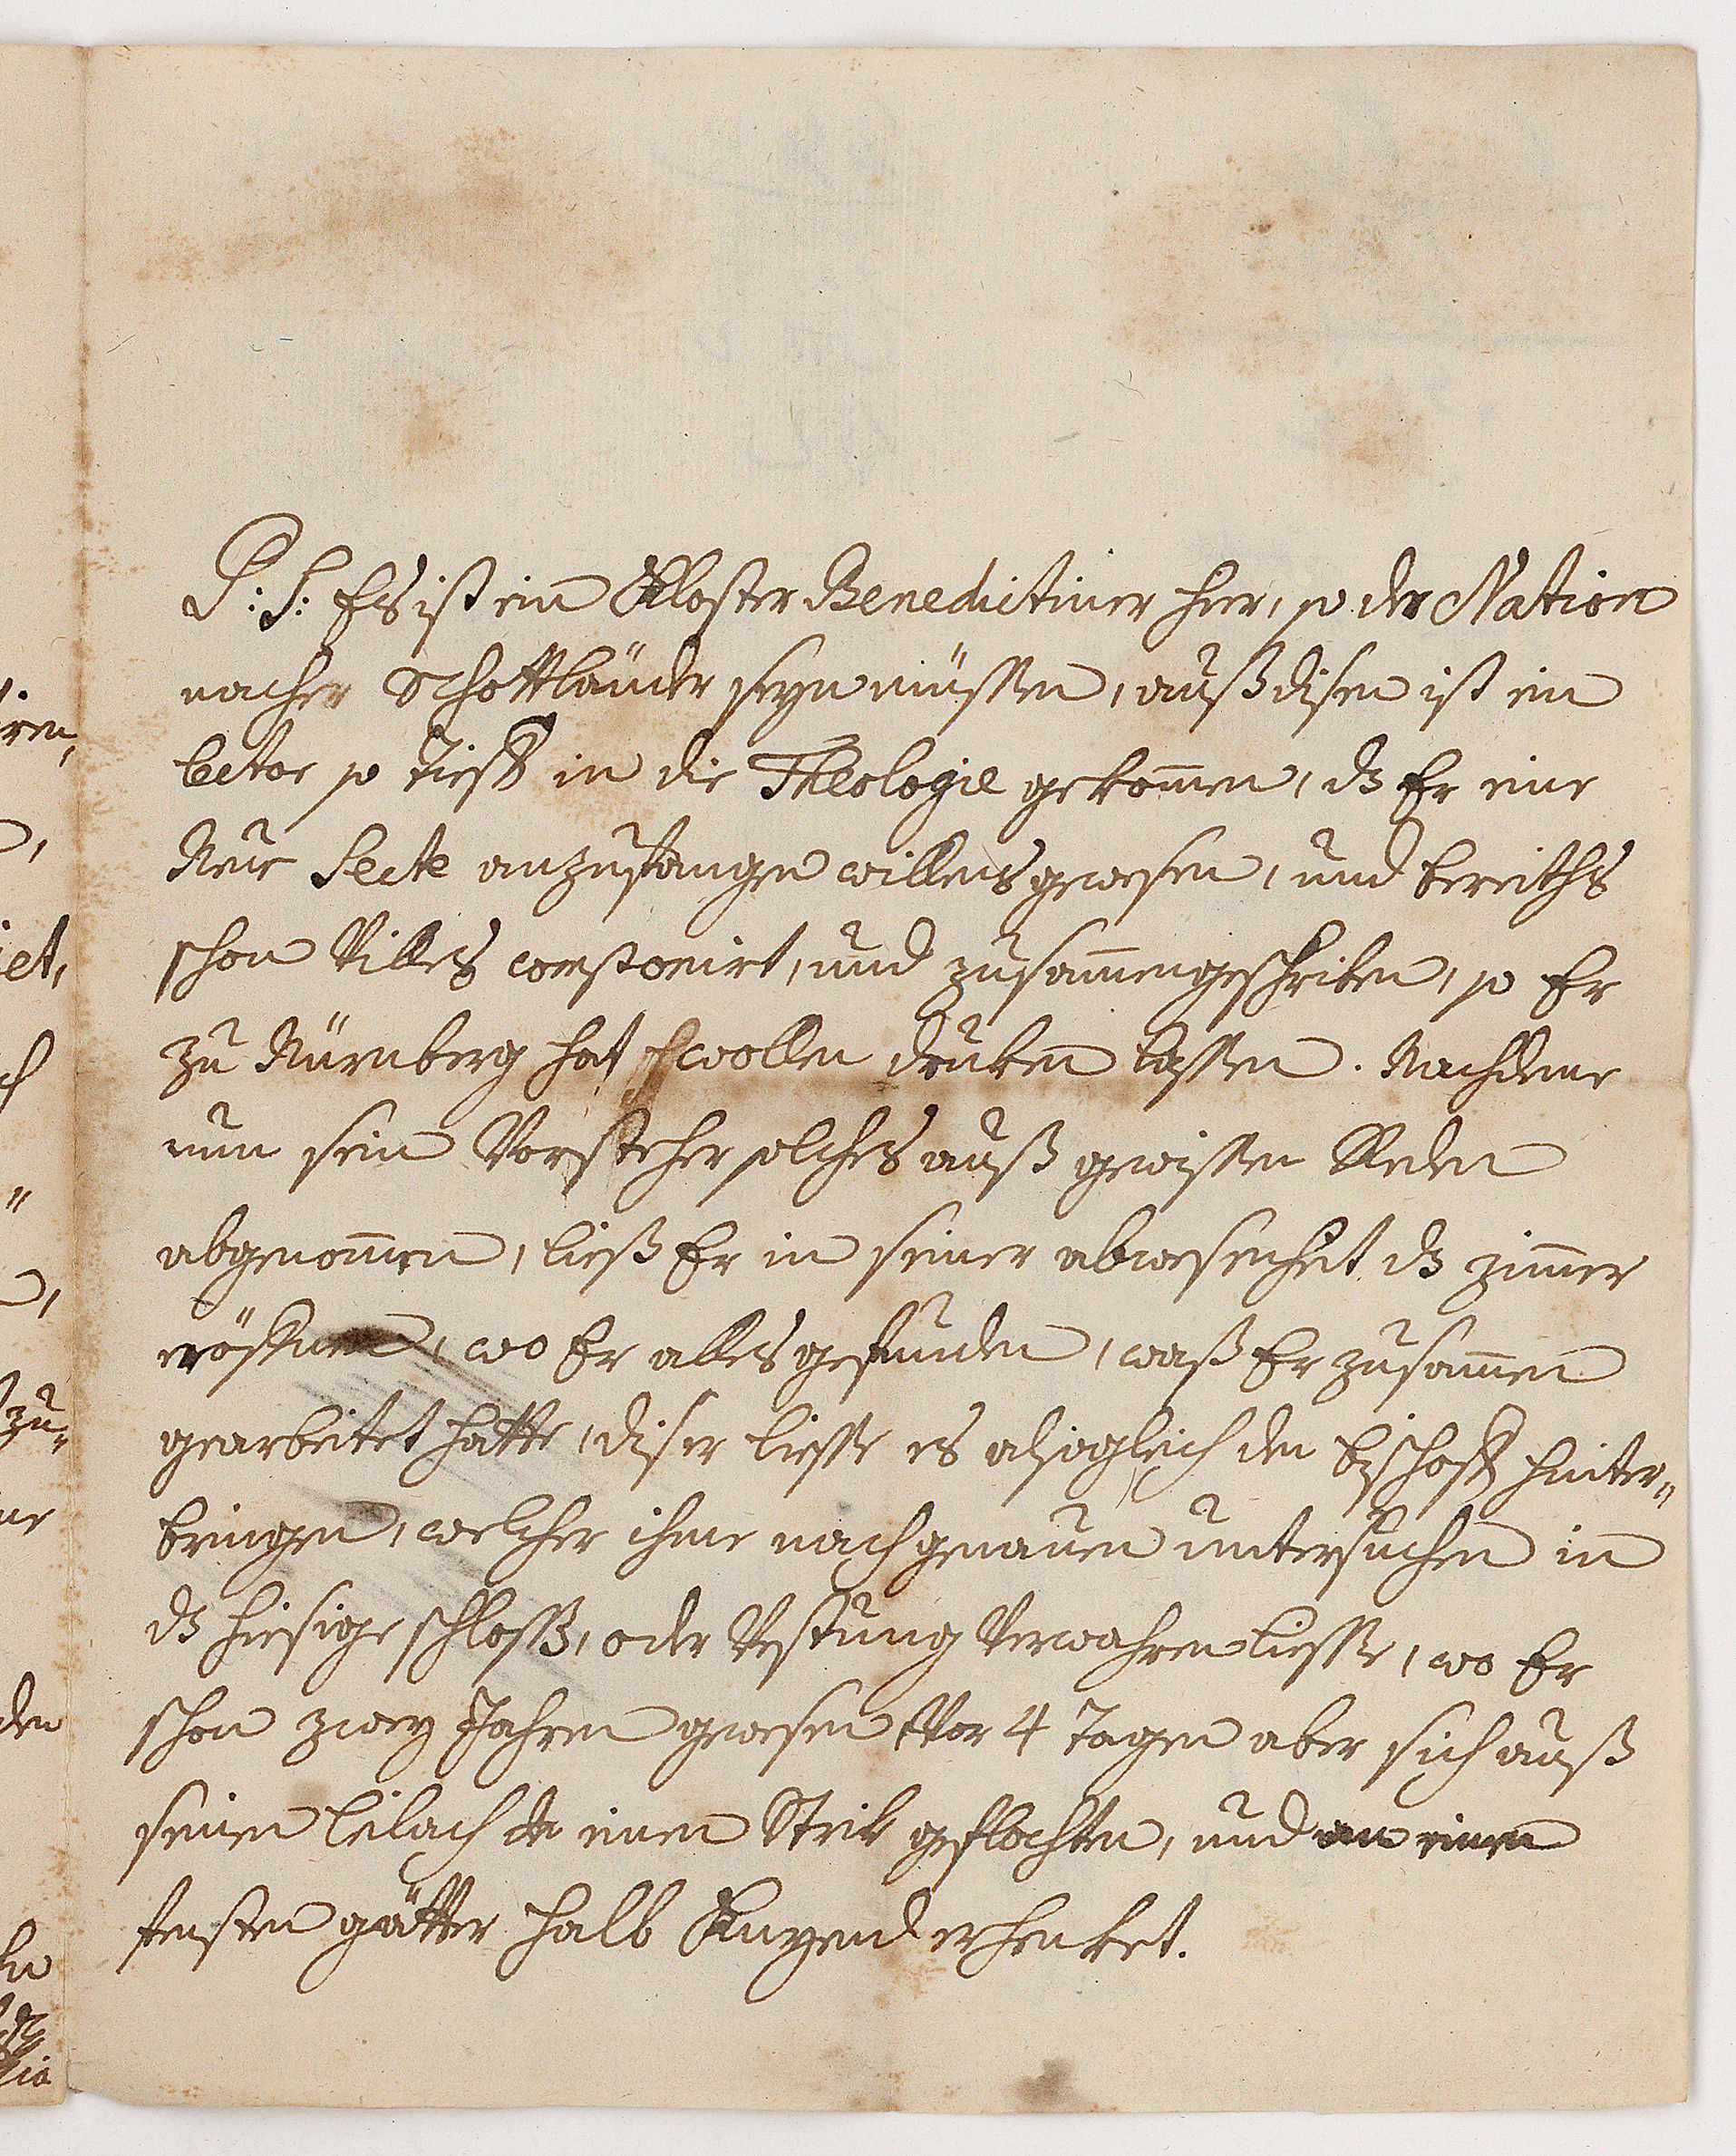 P: S: Es ist ein Kloster Benedictiner hier, so der Nation
nacher Schottländer seyn müssen, auß disen ist ein
Lector so tieff in die Theologie gekom̄en, dz Er eine
Neüe Secte anzufangen willens gewesen, und bereiths
schon Villes componirt, und zusam̄engeschriben, so Er
zu Nürnberg hat wollen druken lassen. Nachdeme
nun sein Vorsteher solches auß gewissen Reden
abgenom̄en, ließ Er in seiner abwesenheit dz zim̄er
eröffnen, wo Er alles gefunden, waß Er zusam̄en
gearbeitet hatte, diser liesse es alsogleich den bischoff hinter„
bringen, welcher ihme nach genauen untersuchen in
dz hiesige schloß, oder Vestung Verwahren liesse, wo Er
schon zwey Jahren gewesen Vor 4 Tagen aber sich auß
seinen leilach einen Strik geflochten, und an einen
fensten gätter halb Knyend erhenket.